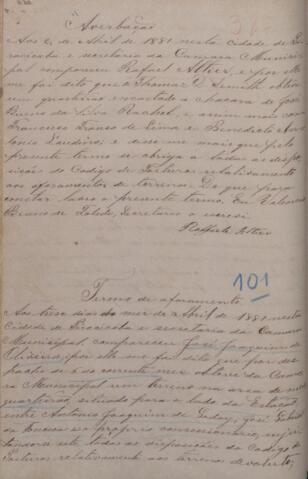 Averbação
Aos 2 de Abril de 1881 nesta cidade de Pi-
racicaba e secretaria da Camara Munici-
pal compareceu Rafael Altieri, e por elle
me foi dito que a Thomaz D. Smith obteve
um quarteirão encostado a chacara de José
Bueno da Silva Rachel, e assim mais com
Francisco Franco de Lima e Benedicto An-
tonio, e disse mais que pelo
presente termo se obriga a todas as dispo-
sição do Codigo de Posturas relativamente
aos aforamentos de terrenos. Do que para
constar lavro o presente termo. Eu
Bueno de Toledo, Secretario o escrevi.
Raffaele Altieri
101
Termo de aforamento
Aos tres dias do mez de Abril de 1881 nesta
Cidade de Piracicaba e secretaria da Camara
Municipal, compareceu José Joaquim de
Oliveira, por elle me foi dito que por des-
pacho de 6 do corrente mez obteve da Cama-
ra Municipal um terreno na area de um
quarteirão, situado para o lado da Estação
entre Antonio Joaquim de, José
da e o proprio concessionario, sujei-
tando-se este todas as disposições do Codigo de
Posturas relativamente aos terrenos devolutos,